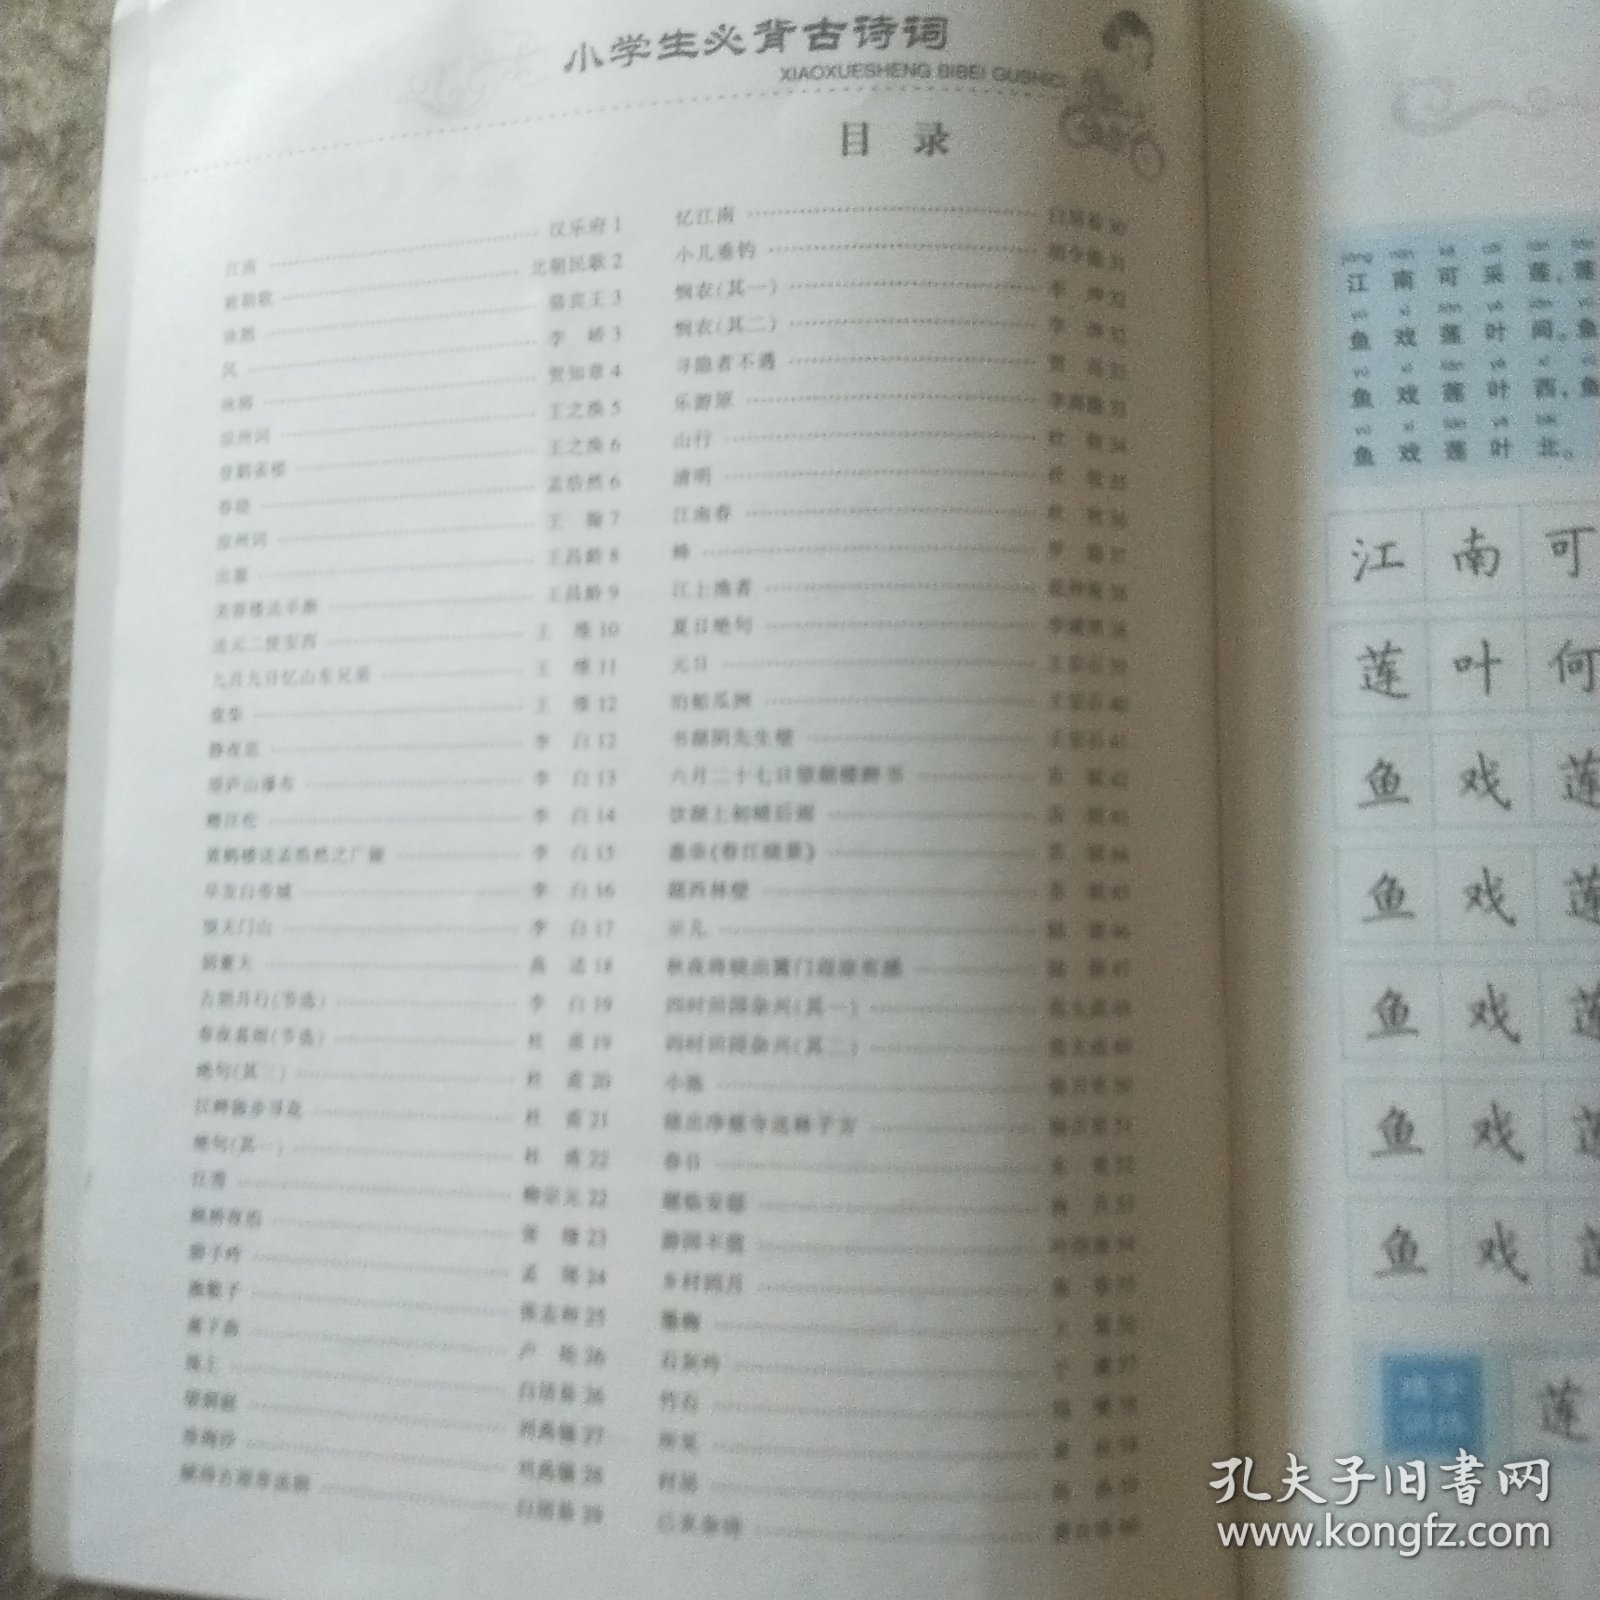 小学生必背古诗词
XIAOXUESHENG BIBEI GUSHICI
目 录
江南 汉乐府 1
敕勒歌 北朝民歌 2
咏鹅 骆宾王 3
风 李 峤 3
咏柳 贺知章 4
凉州词 王之涣 5
登鹳雀楼 王之涣 6
春晓 孟浩然 6
凉州词 王 翰 7
出塞 王昌龄 8
芙蓉楼送辛渐 王昌龄 9
送元二使安西 王 维 10
九月九日忆山东兄弟 王 维 11
鹿柴 王 维 12
静夜思 李 白 12
望庐山瀑布 李 白 13
赠汪伦 李 白 14
黄鹤楼送孟浩然之广陵 李 白 15
早发白帝城 李 白 16
望天门山 李 白 17
别董大 高 适 18
古朗月行(节选) 李 白 19
春夜喜雨(节选) 杜 甫 19
绝句(其三) 杜 甫 20
江畔独步寻花 杜 甫 21
绝句(其一) 杜 甫 22
江雪 柳宗元 22
枫桥夜泊 张 继 23
游子吟 孟 郊 24
渔歌子 张志和 25
塞下曲 卢 纶 26
池上 白居易 26
望洞庭 刘禹锡 27
浪淘沙 刘禹锡 28
赋得古原草送别 白居易 29
忆江南 白居易 30
小儿垂钓 胡令能 31
悯农(其一) 李 绅 32
悯农(其二) 李 绅 32
寻隐者不遇 贾 岛 33
乐游原 李商隐 33
山行 杜 牧 34
清明 杜 牧 35
江南春 杜 牧 36
蜂 罗 隐 37
江上渔者 范仲淹 38
夏日绝句 李清照 38
元日 王安石 39
泊船瓜洲 王安石 40
书湖阴先生壁 王安石 41
六月二十七日望湖楼醉书 苏 轼 42
饮湖上初晴后雨 苏 轼 43
惠崇《春江晚景》 苏 轼 44
题西林壁 苏 轼 45
示儿 陆 游 46
秋夜将晓出篱门迎凉有感 陆 游 47
四时田园杂兴(其一) 范成大 48
四时田园杂兴(其二) 范成大 49
小池 杨万里 50
晓出净慈寺送林子方 杨万里 51
春日 朱 熹 52
题临安邸 林 升 53
游园不值 叶绍翁 54
乡村四月 翁 卷 55
墨梅 王 冕 56
石灰吟 于 谦 57
竹石 郑 燮 58
所见 袁 枚 58
村居 高 鼎 59
己亥杂诗 龚自珍 60
江南可采莲,莲
鱼戏莲叶间。鱼
鱼戏莲叶西,鱼
鱼戏莲叶北。
江 南 可
莲 叶 何
鱼 戏 莲
鱼 戏 莲
鱼 戏 莲
鱼 戏 莲
鱼 戏 莲
莲
孔夫子旧书网
www.kongfz.com